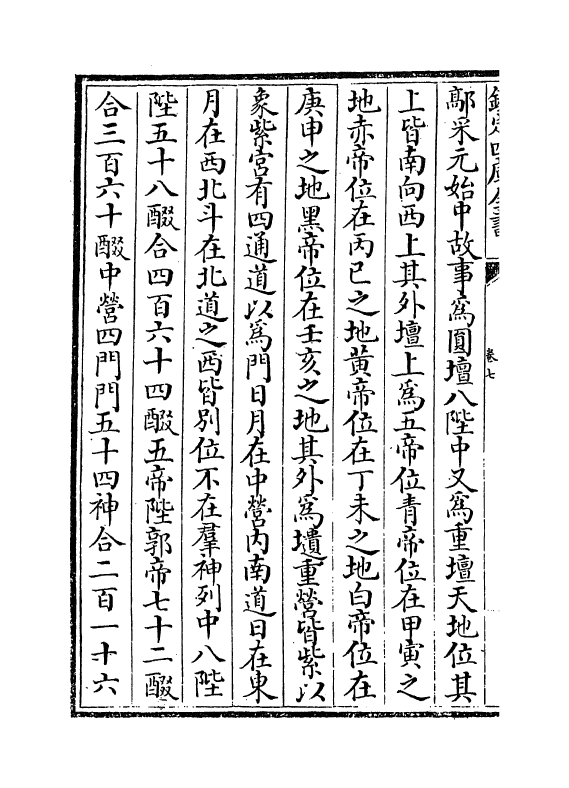 欽定四庫全書
卷七
鄗采元始中故事為圓壇八陛中又為重壇天地位其
上皆南向西上其外壇上為五帝位青帝位在甲寅之
地赤帝位在丙巳之地黄帝位在丁未之地白帝位在
庚申之地黑帝位在壬亥之地其外為壝重營皆紫以
象紫宫有四通道以為門日月在中營内南道日在東
月在西北斗在北道之西皆别位不在羣神列中八陛
陛五十八醊合四百六十四醊五帝陛郭帝七十二醊
合三百六十醊中營四門門五十四神合二百一十六